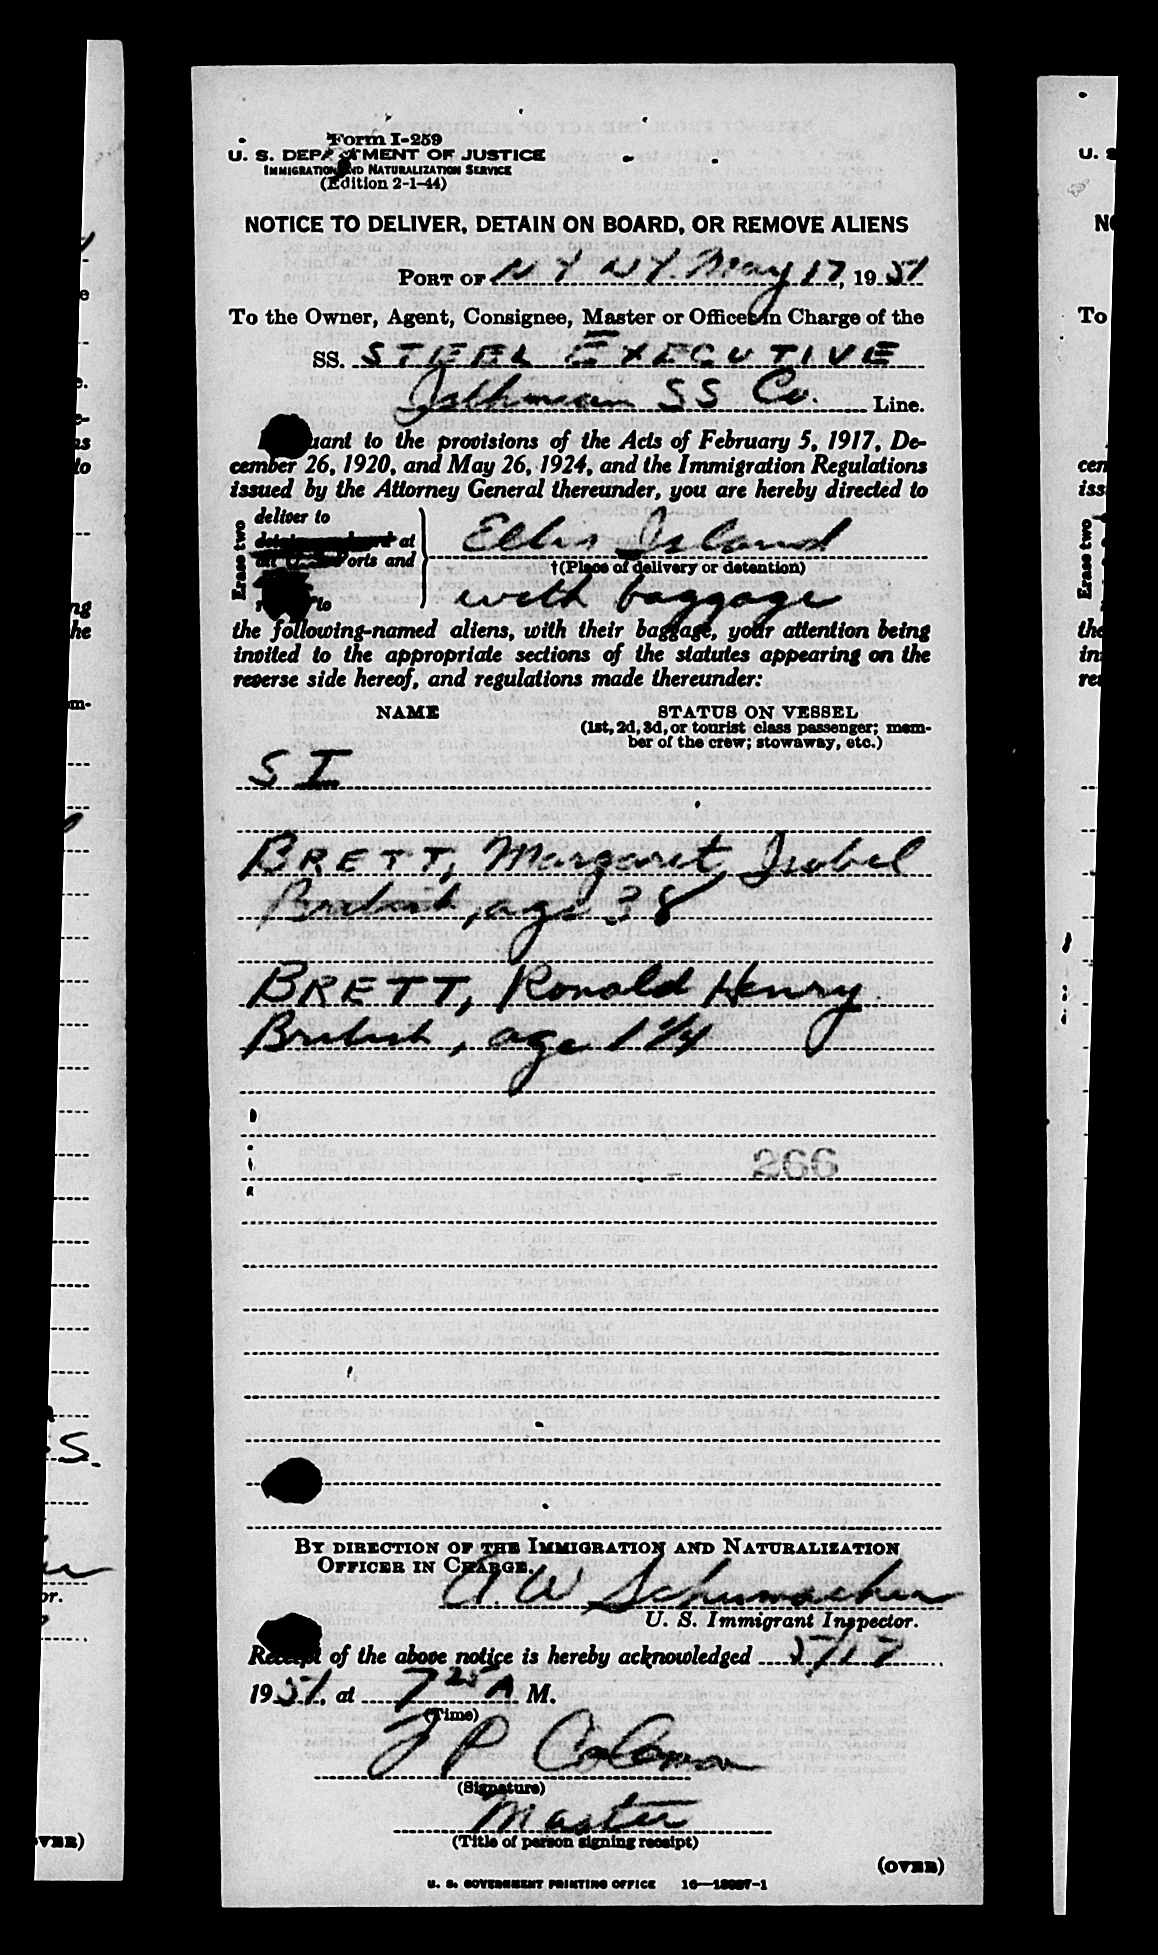 Form I-259
U. S. DEPARTMENT OF JUSTICE
IMMIGRATION AND NATURALIZATION SERVICE
(Edition 2-1-44)
NOTICE TO DELIVER, DETAIN ON BOARD, OR REMOVE ALIENS
PORT OF N Y N Y. May 17, 1951
To the Owner, Agent, Consignee, Master or Officer in Charge of the
SS. STEEL EXECUTIVE
Isthmian SS Co. Line.
Pursuant to the provisions of the Acts of February 5, 1917, De-
cember 26, 1920, and May 26, 1924, and the Immigration Regulations
issued by the Attorney General thereunder, you are hereby directed to
Erase two
deliver to
at
orts and
to
Ellis Island
†(Place of delivery or detention)
with baggage
the following-named aliens, with their baggage, your attention being
invited to the appropriate sections of the statutes appearing on the
reverse side hereof, and regulations made thereunder:
NAME STATUS ON VESSEL
(1st, 2d, 3d, or tourist class passenger; mem-
ber of the crew; stowaway, etc.)
S I
BRETT, Margaret Isobel
British, age 38
BRETT, Ronald Henry
British, age 1 1/4
266
BY DIRECTION OF THE IMMIGRATION AND NATURALIZATION
OFFICER IN CHARGE.
A. W Schumacher
U. S. Immigrant Inspector.
Receipt of the above notice is hereby acknowledged 5/17
1951, at 7 25 A M.
(Time)
J P Coleman
(Signature)
Master
(Title of person signing receipt)
(OVER)
U. S. GOVERNMENT PRINTING OFFICE